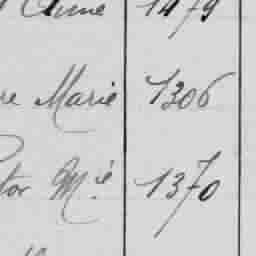 Anne 1479
re Marie 1306
tor M.ie 1370